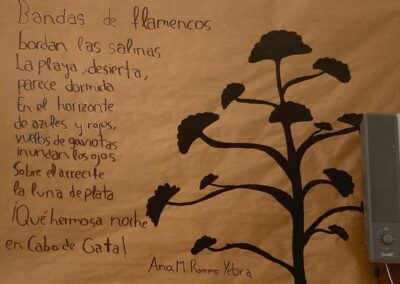 Bandas de flamencos
bordan las salinas
La playa desierta,
parece dormida
En el horizonte
de azules y rojos,
vuelos de gaviotas
inundan los ojos
Sobre el arrecife
la luna de plata
¡Qué hermosa noche
en Cabo de Gata!
Ana M. Romero Yebra